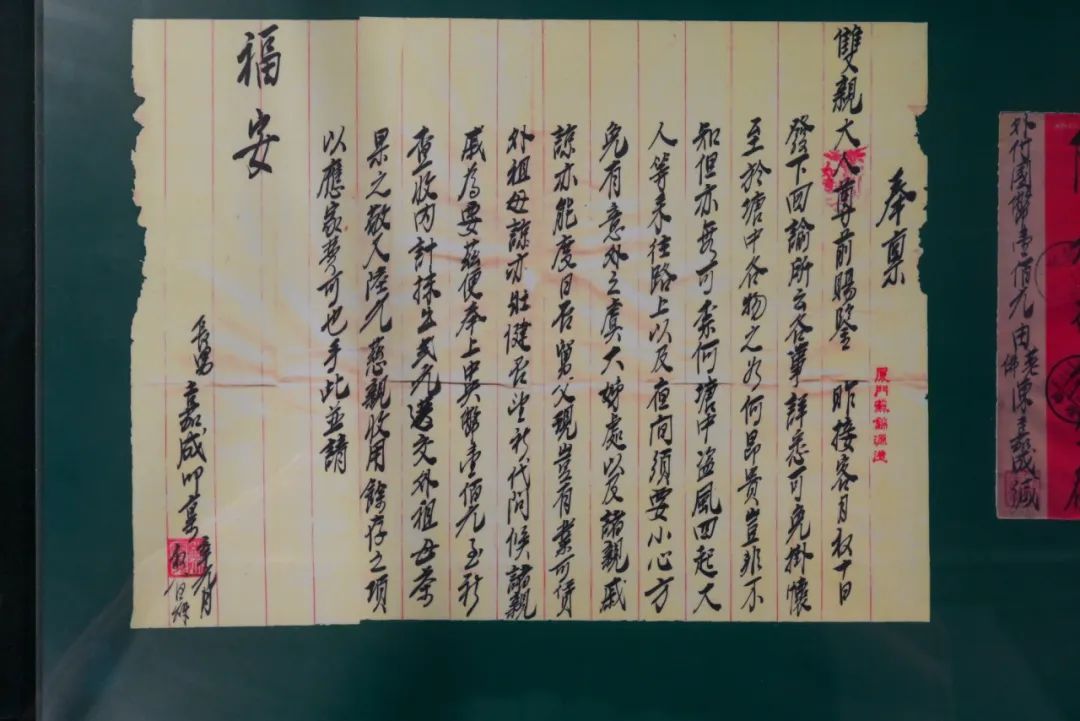 奉稟
雙親大人尊前賜鑒 昨接客月初十日
發下回諭所云各事詳悉可免掛懷
至於塘中各物之如何昂貴豈非不
知但亦無可奈何塘中盜風四起大
人等來往路上以及夜间須要小心方
免有意外之虞大姊處以及諸親戚
諒亦能度日否舅父現豈有業可借
外祖母諒亦壯健否望祈代问候諸親
戚為要茲便奉上中央幣壹佰元至祈
查收内計抹出弍元送交外祖母茶
果之敬又陸元慈親收用餘存之項
以應家費可也手此並請
福安
長男 嘉成叩稟
九月 日
廈門
外付國幣壹佰元由 陳嘉成緘